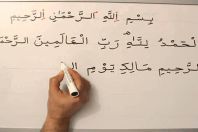 بِسْمِ اللَّهِ الرَّحْمَٰنِ الرَّحِيمِ
لْحَمْدُ لِلَّهِ رَبِّ الْعَالَمِينَ الرَّحْمَ
الرَّحِيمِ مَالِكِ يَوْمِ الـ